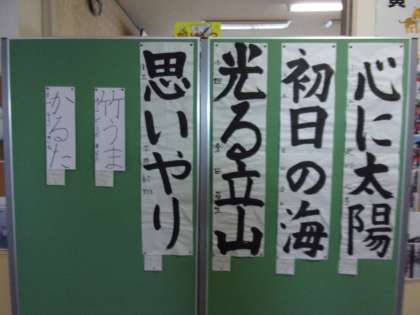 心に太陽
初日の海
光る立山
思いやり
竹うま
かるた